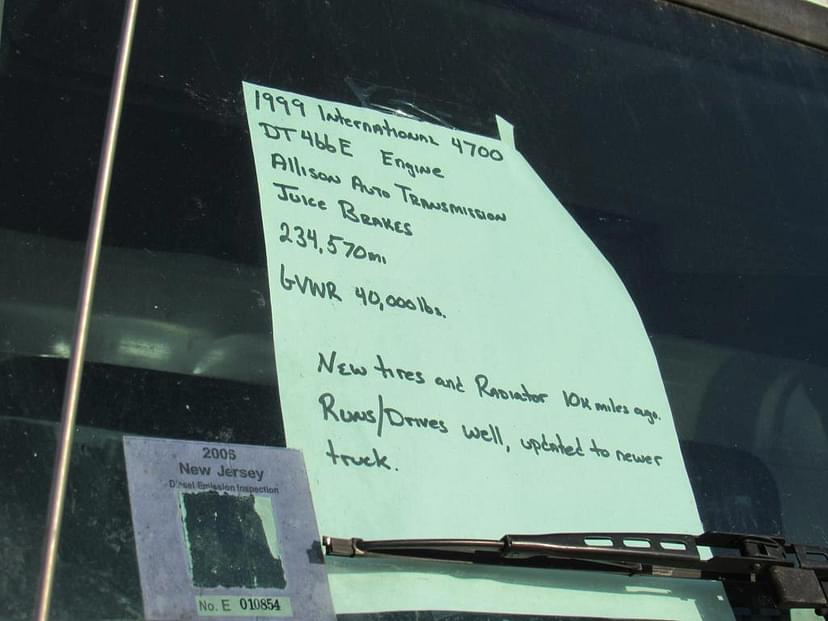 1999 International 4700
DT466E Engine
Allison Auto Transmission
Juice Brakes
234,570mi
GVWR 40,000lbs.
New tires and Radiator 10K miles ago.
Runs/Drives well, updated to newer
truck.
2006
New Jersey
Diesel Emission Inspection
No. E 010854